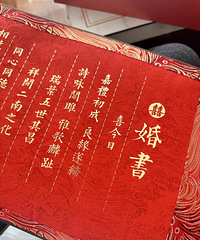 囍
婚書
喜今日
嘉禮初成 良緣遂締
詩咏關雎 雅歌麟趾
瑞葉五世其昌
祥開二南之化
同心同德
相